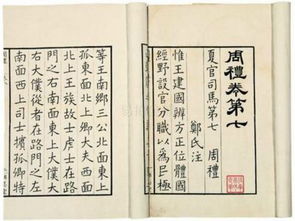 周禮卷第七
夏官司馬第七　周禮
鄭氏注
惟王建國辨方正位體國
經野設官分職以為民極
等王南鄉三公北面東上
孤東面北上卿大夫西面
北上王族故士虎士在路
門之右南面東上大僕大
右大僕從者在路門之左
南面西上司士擯孤卿特